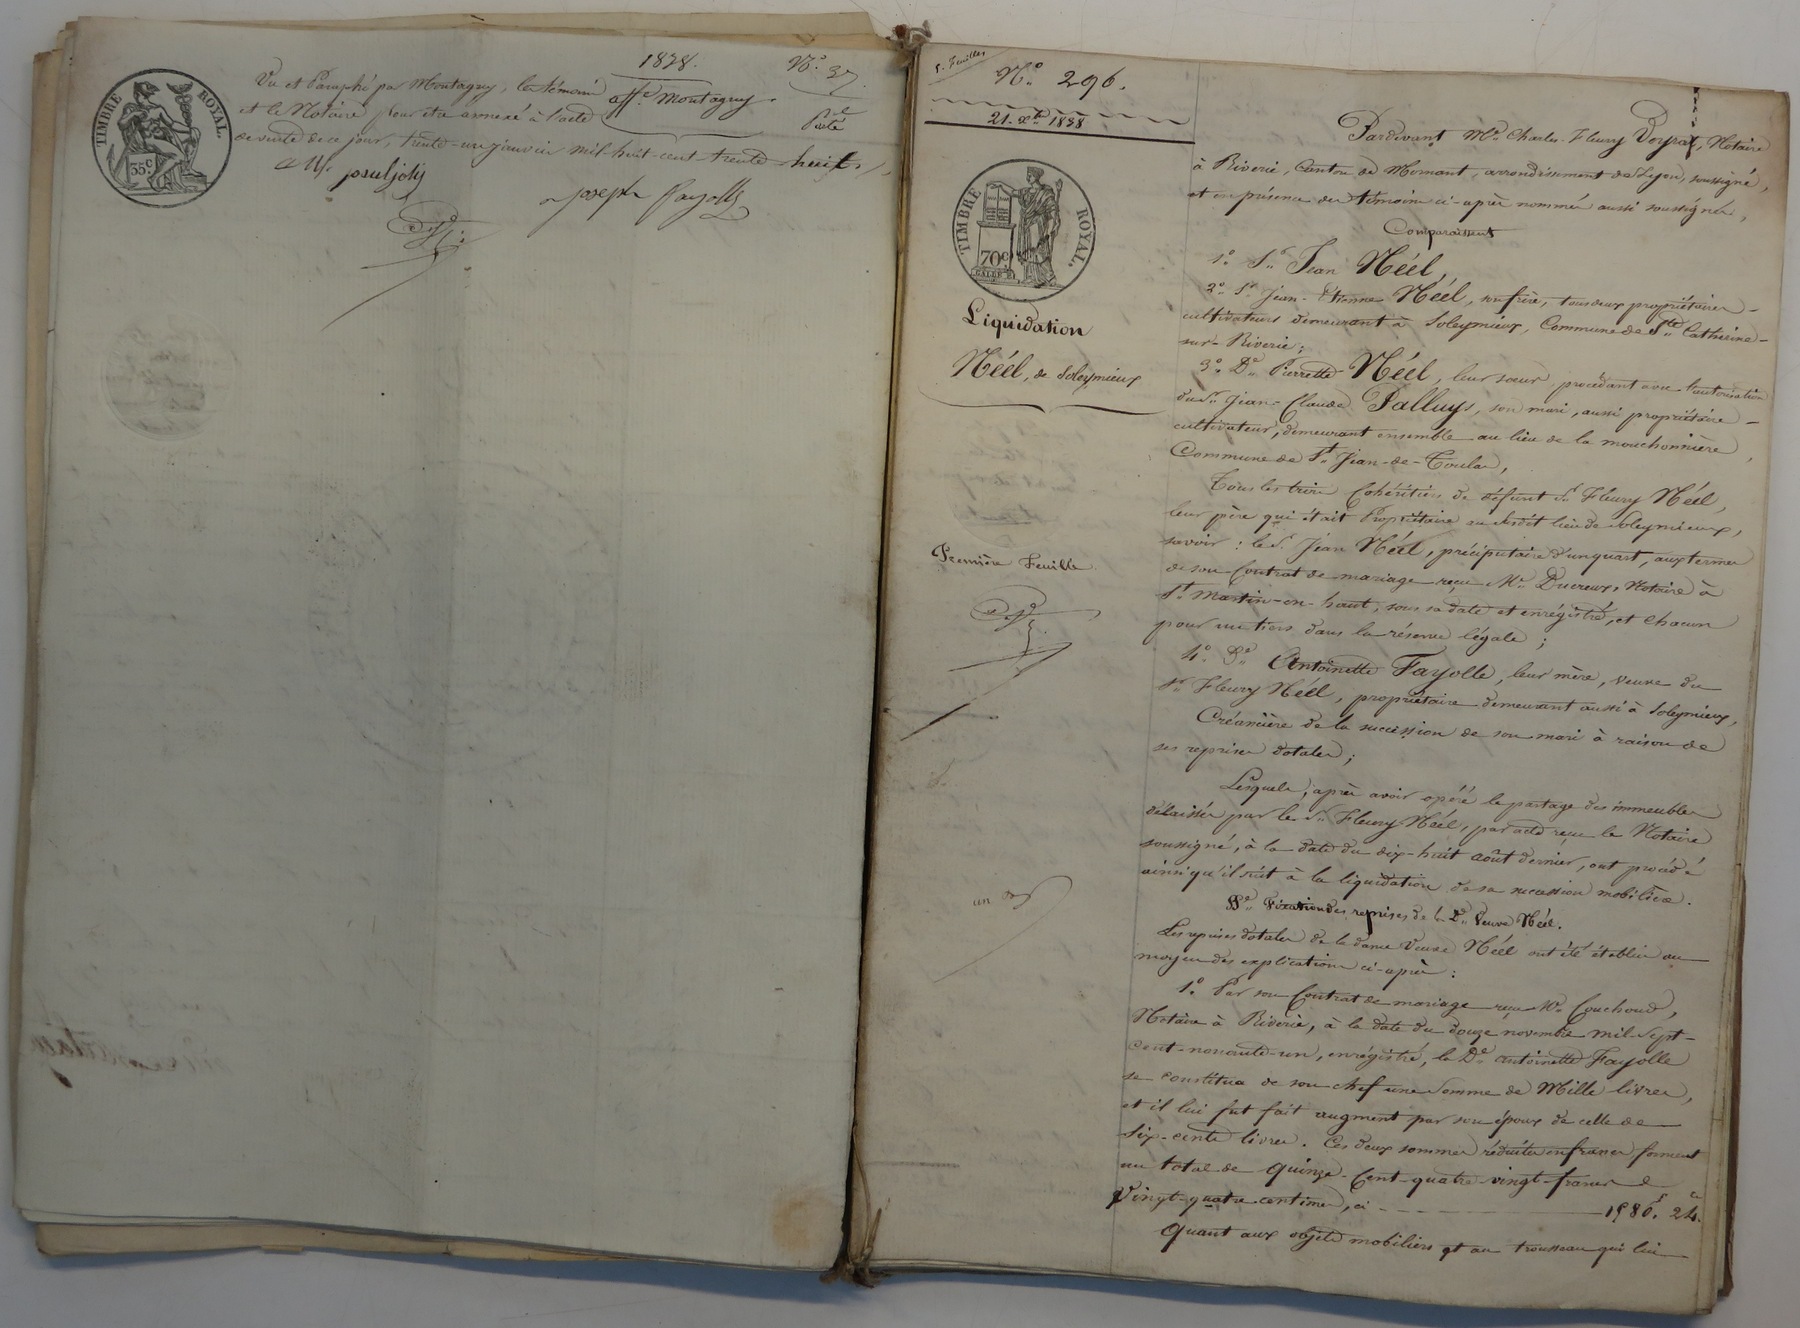 1838.
N.º 37
Vu et Paraphé par Montagny, les témoins
aff.re Montagny.
et le Notaire pour être annexé à l'acte
de vente de ce jour, trente-un janvier mil huit cent trente-huit,
joseph fayolle
TIMBRE ROYAL.
35c
5. feuilles
N.º 296.
21. Xbre 1838
TIMBRE ROYAL.
70c
Liquidation
Néél, de Soleymieux
Première Feuille
Pardevant Me. Charles-Fleury Voyrat, Notaire
à Riverie, Canton de Mornant, arrondissement de Lyon, soussigné,
et en présence des témoins ci-après nommés aussi soussignés,
Comparaissent
1.º S.r Jean Néél,
2.º S.r Jean-Etienne Néél, son frère, tous deux propriétaires-
cultivateurs demeurant à Soleymieux, Commune de Ste. Catherine-
sur-Riverie;
3.º De. Pierrette Néél, leur sœur, procédant avec l'autorisation
du Sr. Jean-Claude Palluys, son mari, aussi propriétaire-
cultivateur, demeurant ensemble au lieu de la mouchonnière,
Commune de St. Jean-de-Toulas,
Tous les trois Cohéritiers de défunt Sr. Fleury Néél,
leur père qui était Propriétaire au susdit lieu de Soleymieux,
savoir: le Sr. Jean Néél, préciputaire d'un quart, aux termes
de son Contrat de mariage reçu Me. Ducreux, Notaire à
St. Martin-en-haut, sous sa date et enrégistré, et chacun
pour un tiers dans la réserve légale;
4.º De. Antoinette Fayolle, leur mère, veuve du
Sr. Fleury Néél, propriétaire demeurant aussi à Soleymieux,
Créancière de la succession de son mari à raison de
ses reprises dotales;
Lesquels, après avoir opéré le partage des immeubles
délaissés par le Sr. Fleury Néél, par acte reçu le Notaire
soussigné, à la date du dix-huit août dernier, ont procédé
ainsi qu'il suit à la liquidation de sa succession mobilière.
Fixation des reprises de la De. Veuve Néél.
Les reprises dotales de la dame Veuve Néél ont été établies au
moyen des explications ci-après:
1.º Par son Contrat de mariage reçu Me. Couchoud,
Notaire à Riverie, à la date du douze novembre mil-sept-
cent-nonante-un, enrégistré, la De. Antoinette Fayolle
se constitua de son chef une somme de Mille livres,
et il lui fut fait augment par son époux de celle de
Six-cents livres. Ces deux sommes réduites en francs forment
un total de quinze-Cent-quatre-vingt-francs
Vingt-quatre centimes, ci 1580f. 24c.
Quant aux objets mobiliers et au trousseau qui lui